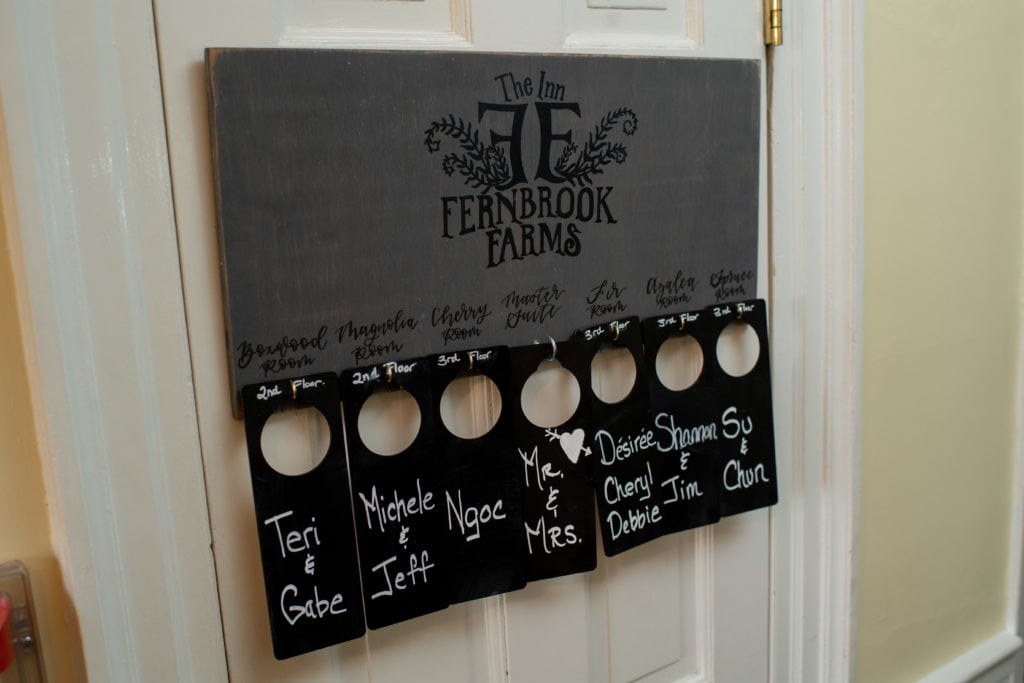 The Inn
FF
FERNBROOK
FARMS
Boxwood
Room
Magnolia
Room
Cherry
Room
Master
Suite
Fir
Room
Azalea
Room
Spruce
Room
2nd Floor.
Teri
&
Gabe
2nd Floor
Michele
&
Jeff
3rd Floor
Ngoc
Mr.
&
Mrs.
3rd Floor
Désirée
Cheryl
Debbie
3rd Floor
Shannon
&
Jim
3rd Floor
Su
&
Chun